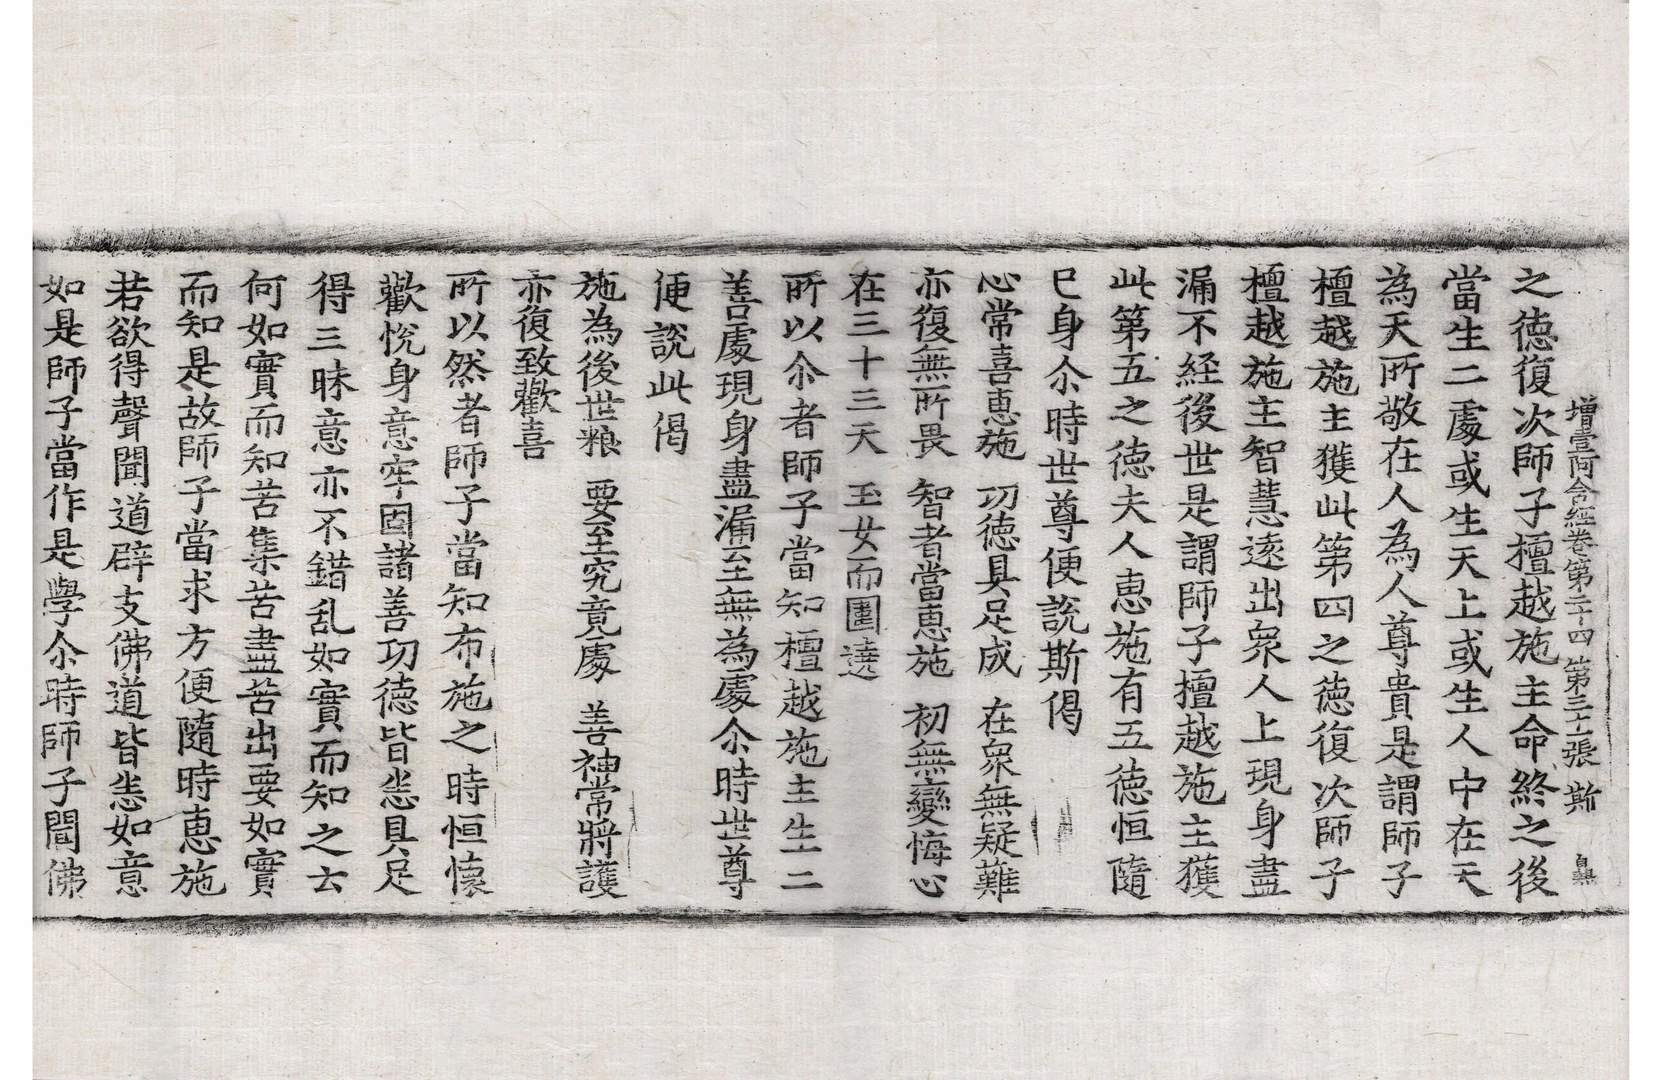 增壹阿含經卷第二十四 第三十一張 斯
之德復次師子檀越施主命終之後
當生二處或生天上或生人中在天
為天所敬在人為人尊貴是謂師子
檀越施主獲此第四之德復次師子
檀越施主智慧遠出衆人上現身盡
漏不経後世是謂師子檀越施主獲
此第五之德夫人恵施有五德恒隨
已身尒時世尊便說斯偈
心常喜恵施 功德具足成 在衆無疑難
亦復無所畏 智者當恵施 初無變悔心
在三十三天 玉女而圍遶
所以尒者師子當知檀越施主生二
善處現身盡漏至無為處尒時世尊
便說此偈
施為後世粮 要至究竟處 善神常將護
亦復致歡喜
所以然者師子當知布施之時恒懷
歡悅身意牢固諸善功德皆悉具足
得三昧意亦不錯乱如實而知之云
何如實而知苦集苦盡苦出要如實
而知是故師子當求方便隨時恵施
若欲得聲聞道辟支佛道皆悉如意
如是師子當作是學尒時師子聞佛